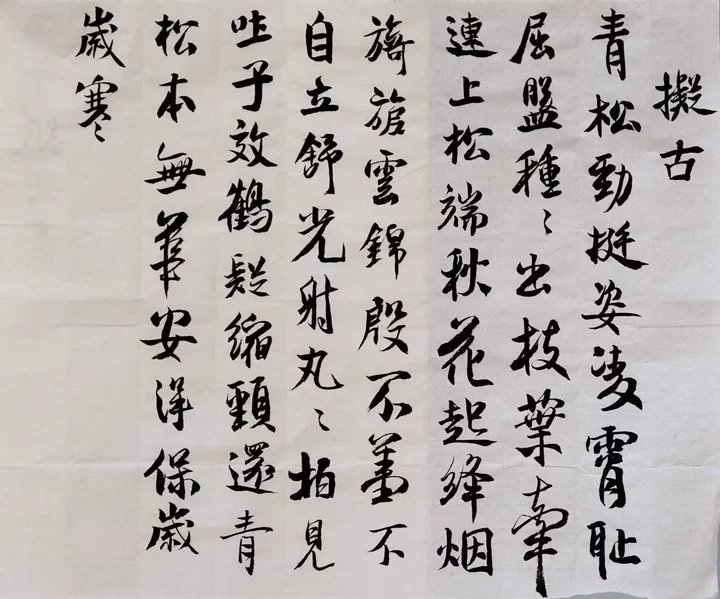 擬古
青松勁挺姿凌霄耻
屈盤種〻出枝葉牽
連上松端秋花起絳烟
旖旎雲錦殷不羞不
自立舒光射丸〻柏見
吐子效鶴疑縮頸還青
松本無華安得保歲
歲寒